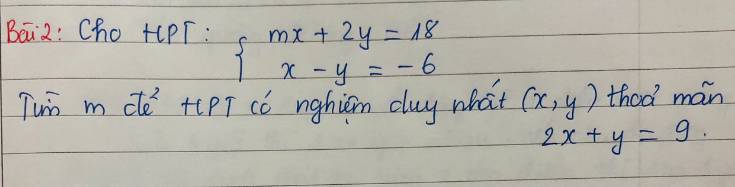 Bài 2: Cho HPT: { mx + 2y = 18
x - y = -6
Tìm m để HPT có nghiệm duy nhất (x, y) thoả mãn
2x + y = 9.